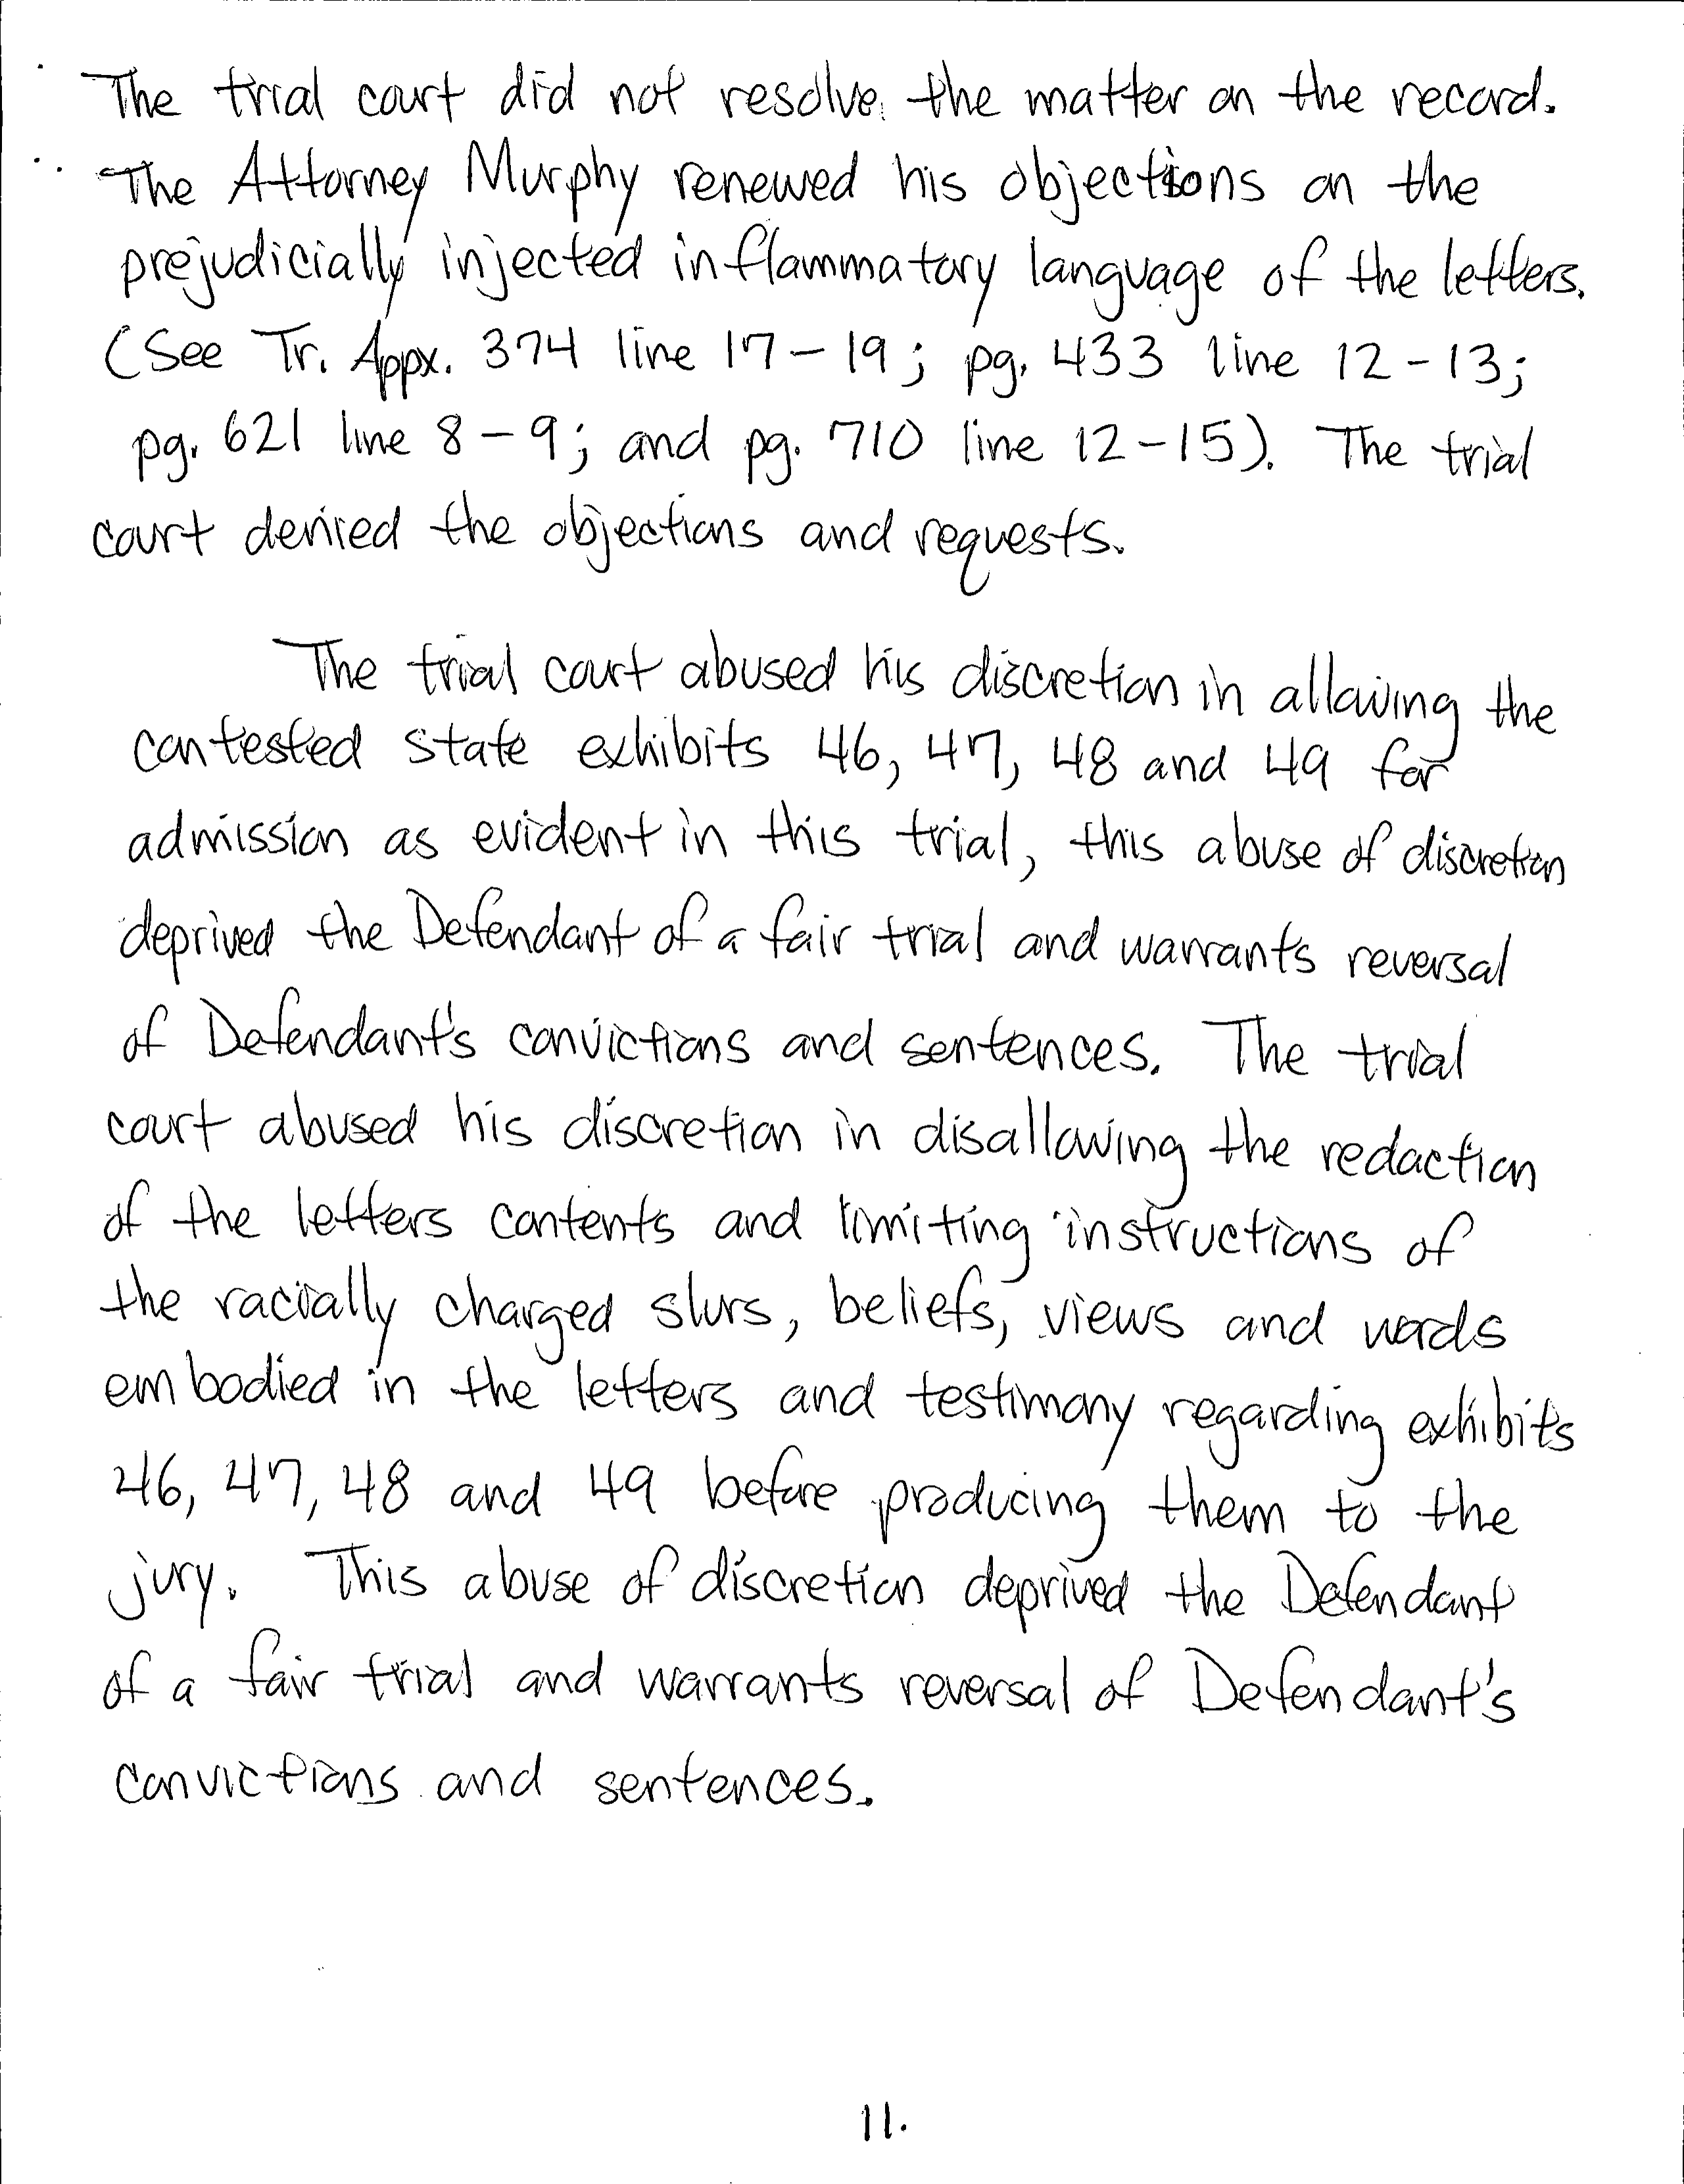 The trial court did not resolve the matter on the record.
The Attorney Murphy renewed his objections on the
prejudicially injected inflammatory language of the letters.
(See Tr. Appx. 374 line 17-19; pg. 433 line 12-13;
pg. 621 line 8-9; and pg. 710 line 12-15). The trial
court denied the objections and requests.
The trial court abused his discretion in allowing the
contested state exhibits 46, 47, 48 and 49 for
admission as evident in this trial, this abuse of discretion
deprived the Defendant of a fair trial and warrants reversal
of Defendant's convictions and sentences. The trial
court abused his discretion in disallowing the redaction
of the letters contents and limiting instructions of
the racially charged slurs, beliefs, views and words
embodied in the letters and testimony regarding exhibits
46, 47, 48 and 49 before producing them to the
jury. This abuse of discretion deprived the Defendant
of a fair trial and warrants reversal of Defendant's
convictions and sentences.
11.